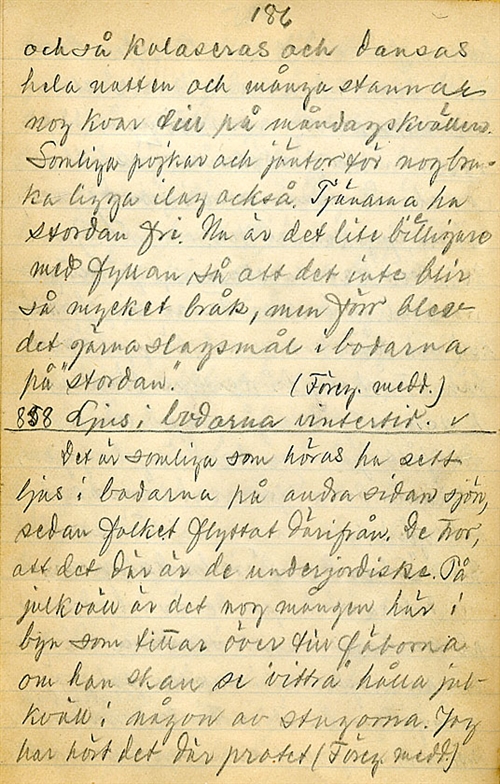 186
också kalaseras och dansas
hela natten och många stannar
nog kvar till på måndagskvällen.
Somliga pojkar och jäntor för nog bru-
ka ligga ilag också. Tjänarna ha
stordan fri. Nu är det lite billigare
med fyllan så att det inte blir
så mycket bråk, men förr blev
det gärna slagsmål i bodarna
på "stordan". (Föreg. medd.)
858 Ljus i bodarna vintertid. ✓
Det är somliga som höras ha sett
ljus i bodarna på andra sidan sjön,
sedan folket flyttat därifrån. De tror,
att det där är de underjordiske. På
julkväll är det nog mången här i
byn som tittar över till fäborna
om han skall se "vittra" hålla jul-
kväll i någon av stugorna. Jag
har hört det där pratet (Föreg. medd.)